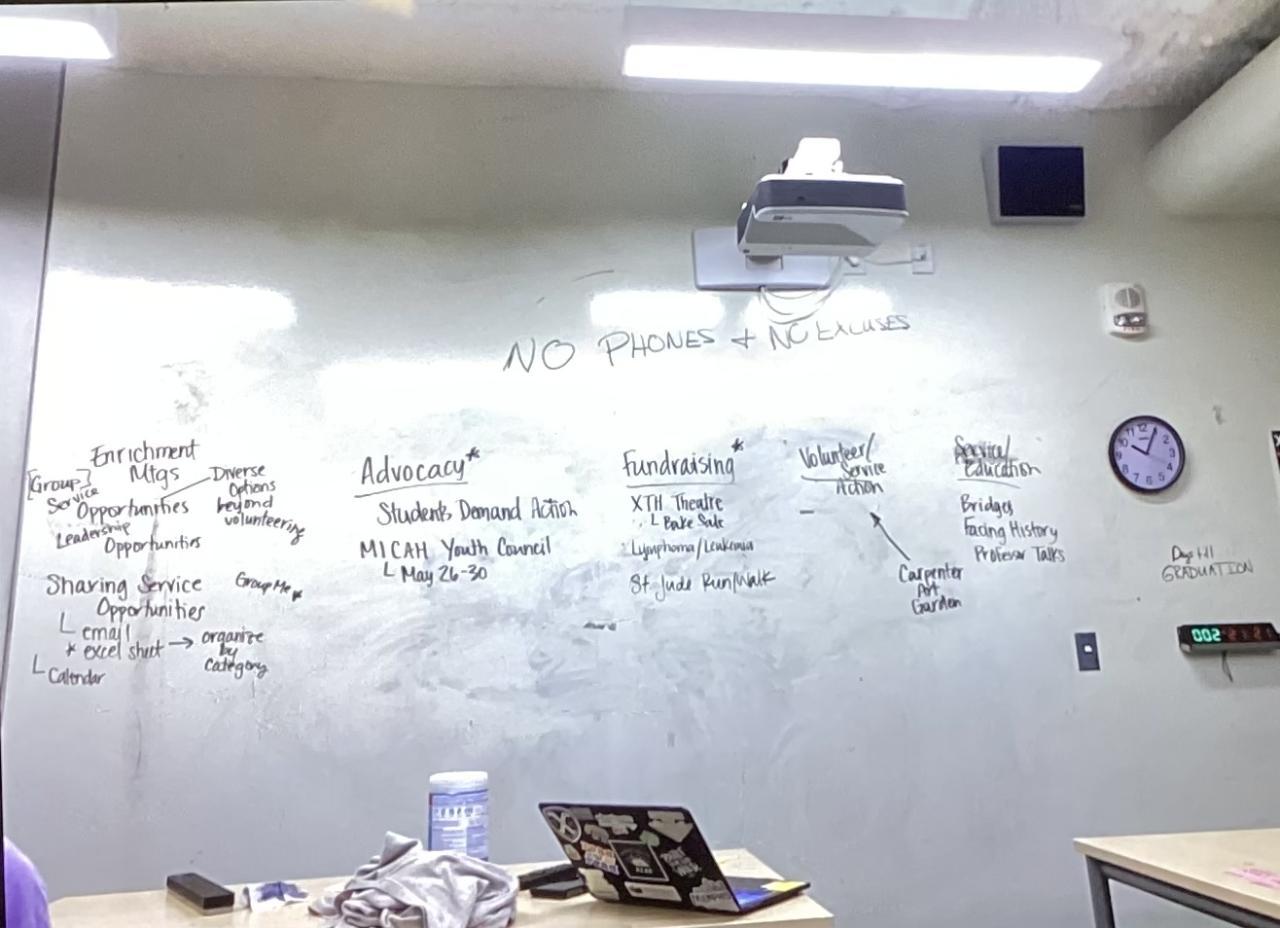 NO PHONES + NO EXCUSES
Enrichment
Mtgs
[Group]
Service
Opportunities
Leadership
Opportunities
Diverse
Options
beyond
volunteering
Sharing Service
Opportunities
GroupMe
email
* excel sheet → organize
by
Category
Calendar
Advocacy*
Students Demand Action
MICAH Youth Council
May 26-30
Fundraising*
XTH Theatre
Bake Sale
Lymphoma/Leukemia
St. Jude Run/Walk
Volunteer/
Service
Action
Carpenter
Art
Garden
Service/
Education
Bridges
Facing History
Profesor Talks
Days till
GRADUATION
002
11 12
10 2
9 3
8 4
7 6 5